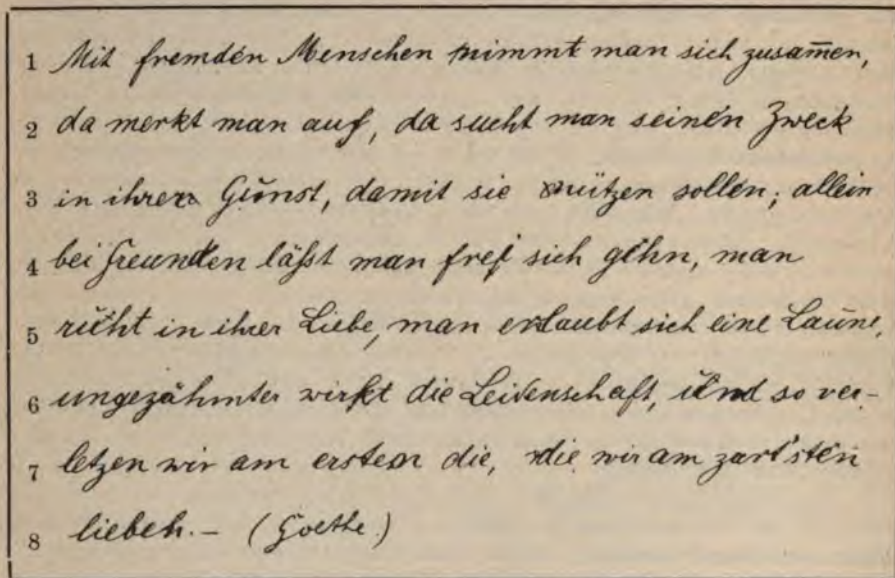 1 Mit fremden Menschen nimmt man sich zusam̄en,
2 da merkt man auf, da sucht man seinen Zweck
3 in ihrer Gunst, damit sie nützen sollen; allein
4 bei Freunden läſst man frei sich gehn, man
5 ruht in ihrer Liebe, man erlaubt sich eine Laune,
6 ungezähmter wirkt die Leidenschaft, und so ver-
7 letzen wir am ersten die, die wir am zart'sten
8 lieben. – (Goethe.)